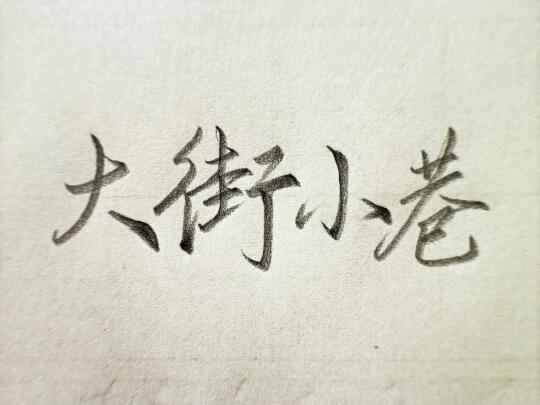 大街小巷